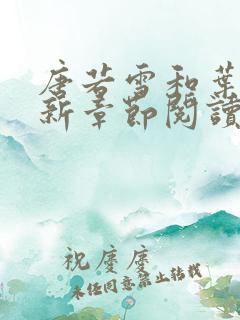 唐若雪和葉
新章節閱讀
祝慶慶
未经同意禁止转载